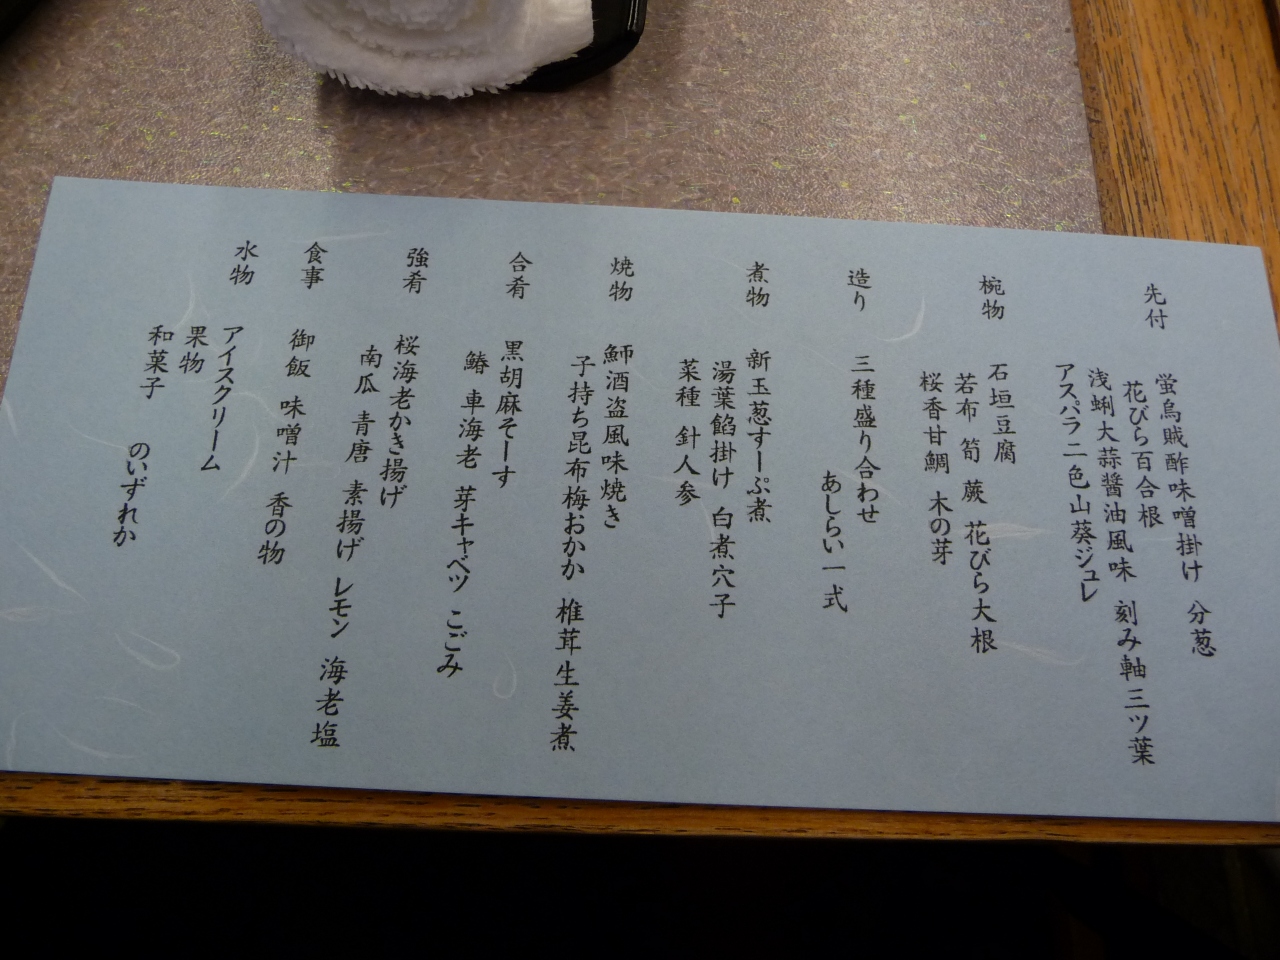 先付
蛍烏賊酢味噌掛け 分葱
花びら百合根
浅蜊大蒜醤油風味 刻み軸三ツ葉
アスパラ二色山葵ジュレ
椀物
石垣豆腐
若布 筍 蕨 花びら大根
桜香甘鯛 木の芽
造り
三種盛り合わせ
あしらい一式
煮物
新玉葱すーぷ煮
湯葉餡掛け 白煮穴子
菜種 針人参
焼物
鰤酒盗風味焼き
子持ち昆布梅おかか 椎茸生姜煮
合肴
黒胡麻そーす
鰆 車海老 芽キャベツ こごみ
強肴
桜海老かき揚げ
南瓜 青唐 素揚げ レモン 海老塩
食事
御飯 味噌汁 香の物
水物
アイスクリーム
果物
和菓子
のいずれか